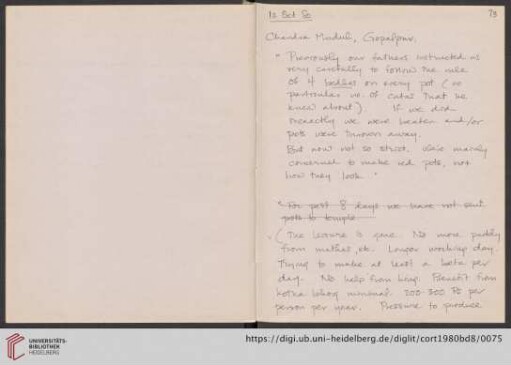 12 Oct 80
73
Chandra Muduli, Gopalpur.
" Previously our fathers instructed us
very carefully to follow the rule
of 4 on every pot (no
particular no. of that he
knew about). If we did
incorrectly we were beaten and/or
pots were thrown away.
But now not so strict. We're mainly
concerned to make ied pots, not
how they look "
past 8 days we have not sent
pots to temple
(The leisure is gone. No more paddy
from mathas, etc. Longer working day.
Trying to make at least a per
day. No help from king. Benefit from
minimal. 200-300 Rs per
person per year. Pressure to produce
UNIVERSITÄTS-
BIBLIOTHEK
HEIDELBERG
https://digi.ub.uni-heidelberg.de/diglit/cort1980bd8/0075